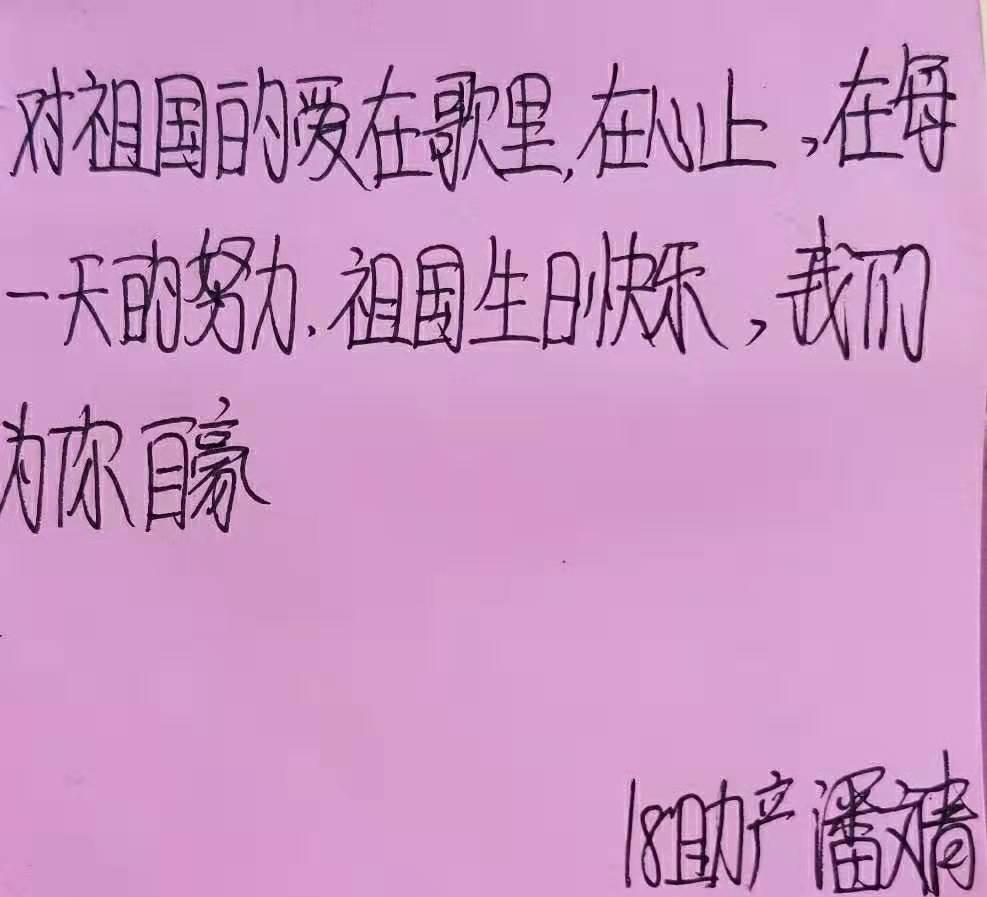 对祖国的爱在歌里,在心上,在每
一天的努力.祖国生日快乐,我们
为你自豪
18助产潘文倩